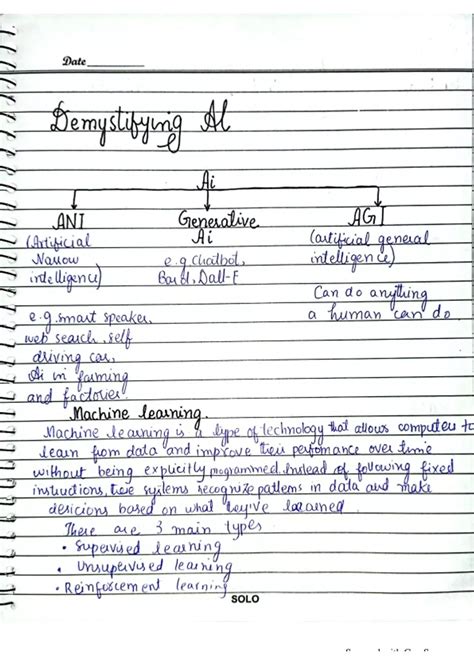 Date
Demystifying AI
Ai
ANI Generative AGI
(Artificial Ai (artificial general
Narrow e.g Chatbot, intelligence)
intelligence) Bard, Dall-E
Can do anything
e.g. smart speaker, a human can do
web search, self
driving car,
Ai in farming
and factories.
Machine learning.
Machine learning is a type of technology that allows computer to
learn from data and improve their perfomance over time
without being explicitly programmed. Instead of following fixed
instructions, these systems recognize patterns in data and make
decisions based on what they've learned
There are 3 main types
• Supervised learning
• Unsupervised learning
• Reinforcement learning
SOLO